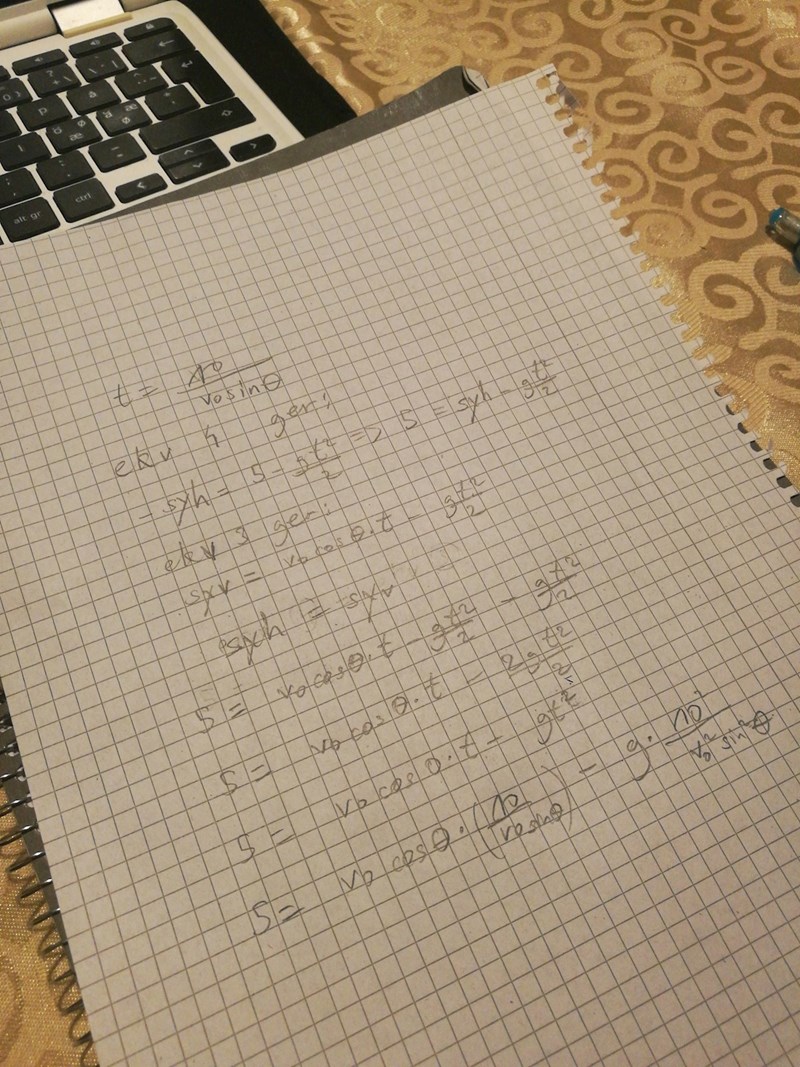 alt gr
ctrl
t = 10 / v0 sinθ
ekv 4 ger:
- syh = 5 - gt²/2 => 5 = syh - gt²/2
ekv 3 ger:
sxv = v0 cosθ·t - gt²/2
sxh = sxv
5 = v0 cosθ·t - gt²/2 - gt²/2
5 = v0 cosθ·t - 2gt²/2
5 = v0 cosθ·t - gt²
5 = v0 cosθ·(10 / v0 sinθ) - g· 10² / v0² sin²θ